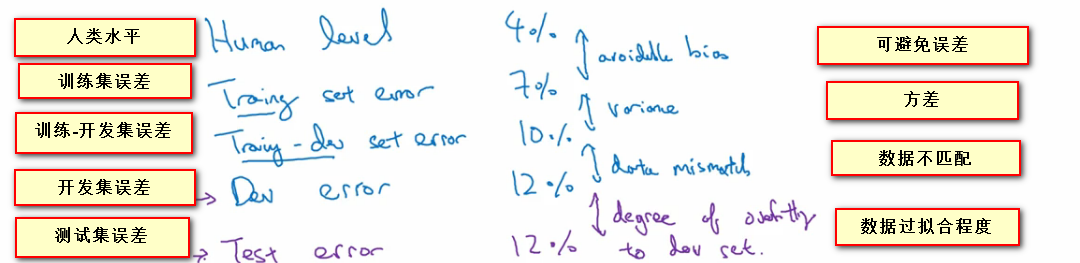 人类水平 Human level 4% avoidable bias 可避免误差
训练集误差 Traing set error 7% variance 方差
训练-开发集误差 Traing-dev set error 10% data mismatch 数据不匹配
开发集误差 → Dev error 12% degree of overfitting 数据过拟合程度
测试集误差 → Test error 12% to dev set.